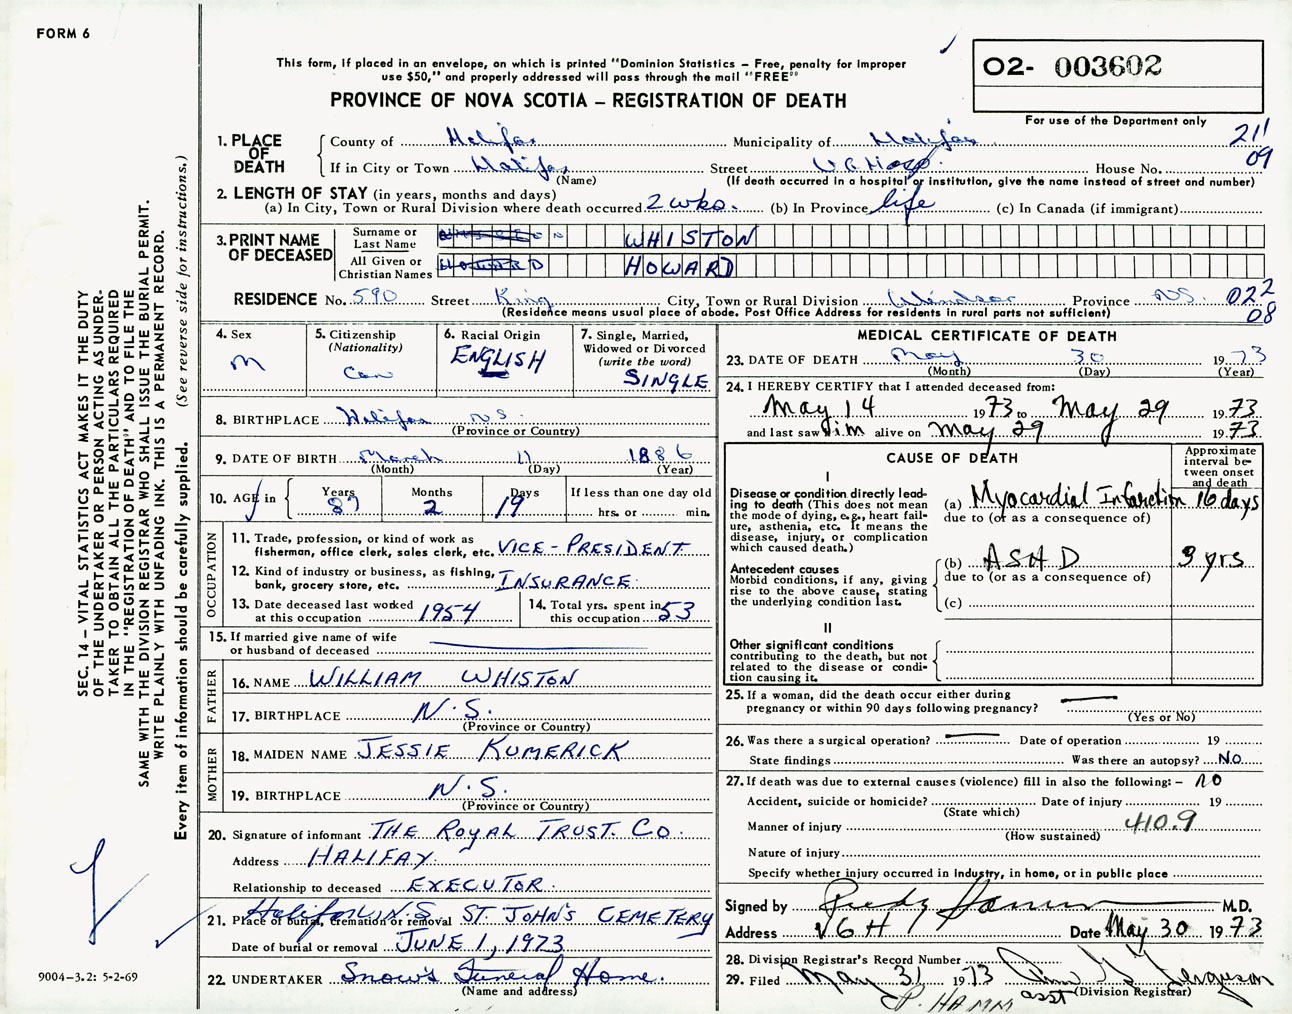 FORM 6
This form, if placed in an envelope, on which is printed "Dominion Statistics – Free, penalty for improper
use $50," and properly addressed will pass through the mail "FREE"
PROVINCE OF NOVA SCOTIA – REGISTRATION OF DEATH
O2- 003602
For use of the Department only
211
09
1. PLACE OF DEATH
County of Halifax Municipality of Halifax
If in City or Town Halifax (Name) Street V.G. Hosp. House No.
(If death occurred in a hospital or institution, give the name instead of street and number)
2. LENGTH OF STAY (in years, months and days)
(a) In City, Town or Rural Division where death occurred 2 wks. (b) In Province life (c) In Canada (if immigrant)
3. PRINT NAME OF DECEASED
Surname or Last Name WHISTON
All Given or Christian Names HOWARD
RESIDENCE No. 590 Street King City, Town or Rural Division Windsor Province N.S. 022
(Residence means usual place of abode. Post Office Address for residents in rural parts not sufficient) 08
4. Sex
M
5. Citizenship
(Nationality)
Can
6. Racial Origin
ENGLISH
7. Single, Married,
Widowed or Divorced
(write the word)
SINGLE
8. BIRTHPLACE Halifax N.S.
(Province or Country)
9. DATE OF BIRTH March 11 1886
(Month) (Day) (Year)
10. AGE in Years 87 Months 2 Days 19
If less than one day old
hrs. or min.
OCCUPATION
11. Trade, profession, or kind of work as
fisherman, office clerk, sales clerk, etc. VICE-PRESIDENT
12. Kind of industry or business, as fishing,
bank, grocery store, etc. INSURANCE
13. Date deceased last worked
at this occupation 1954
14. Total yrs. spent in
this occupation 53
15. If married give name of wife
or husband of deceased
FATHER
16. NAME WILLIAM WHISTON
17. BIRTHPLACE N.S.
(Province or Country)
MOTHER
18. MAIDEN NAME JESSIE KUMERICK
19. BIRTHPLACE N.S.
(Province or Country)
20. Signature of informant THE ROYAL TRUST. CO.
Address HALIFAX.
Relationship to deceased EXECUTOR.
21. Place of burial, cremation or removal Halifax N.S ST. JOHN'S CEMETERY
Date of burial or removal JUNE 1, 1973
22. UNDERTAKER Snow's Funeral Home.
(Name and address)
MEDICAL CERTIFICATE OF DEATH
23. DATE OF DEATH May 30 1973
(Month) (Day) (Year)
24. I HEREBY CERTIFY that I attended deceased from:
May 14 1973 to May 29 1973
and last saw him alive on May 29 1973
CAUSE OF DEATH
Approximate
interval be-
tween onset
and death
I
Disease or condition directly lead-
ing to death (This does not mean
the mode of dying, e.g., heart fail-
ure, asthenia, etc. It means the
disease, injury, or complication
which caused death.)
(a) Myocardial Infarction 16 days
due to (or as a consequence of)
Antecedent causes
Morbid conditions, if any, giving
rise to the above cause, stating
the underlying condition last.
(b) ASHD 3 yrs
due to (or as a consequence of)
(c)
II
Other significant conditions
contributing to the death, but not
related to the disease or condi-
tion causing it.
25. If a woman, did the death occur either during
pregnancy or within 90 days following pregnancy?
(Yes or No)
26. Was there a surgical operation? Date of operation 19
State findings Was there an autopsy? No
27. If death was due to external causes (violence) fill in also the following: – no
Accident, suicide or homicide? Date of injury 19
(State which)
Manner of injury 410.9
(How sustained)
Nature of injury
Specify whether injury occurred in industry, in home, or in public place
Signed by M.D.
Address VGH Date May 30 1973
28. Division Registrar's Record Number
29. Filed May 31 1973 Ferguson
asst (Division Registrar)
P. HAMM
SEC. 14 – VITAL STATISTICS ACT MAKES IT THE DUTY
OF THE UNDERTAKER OR PERSON ACTING AS UNDER-
TAKER TO OBTAIN ALL THE PARTICULARS REQUIRED
IN THE "REGISTRATION OF DEATH" AND TO FILE THE
SAME WITH THE DIVISION REGISTRAR WHO SHALL ISSUE THE BURIAL PERMIT.
WRITE PLAINLY WITH UNFADING INK. THIS IS A PERMANENT RECORD.
Every item of information should be carefully supplied. (See reverse side for instructions.)
9004–3.2: 5-2-69